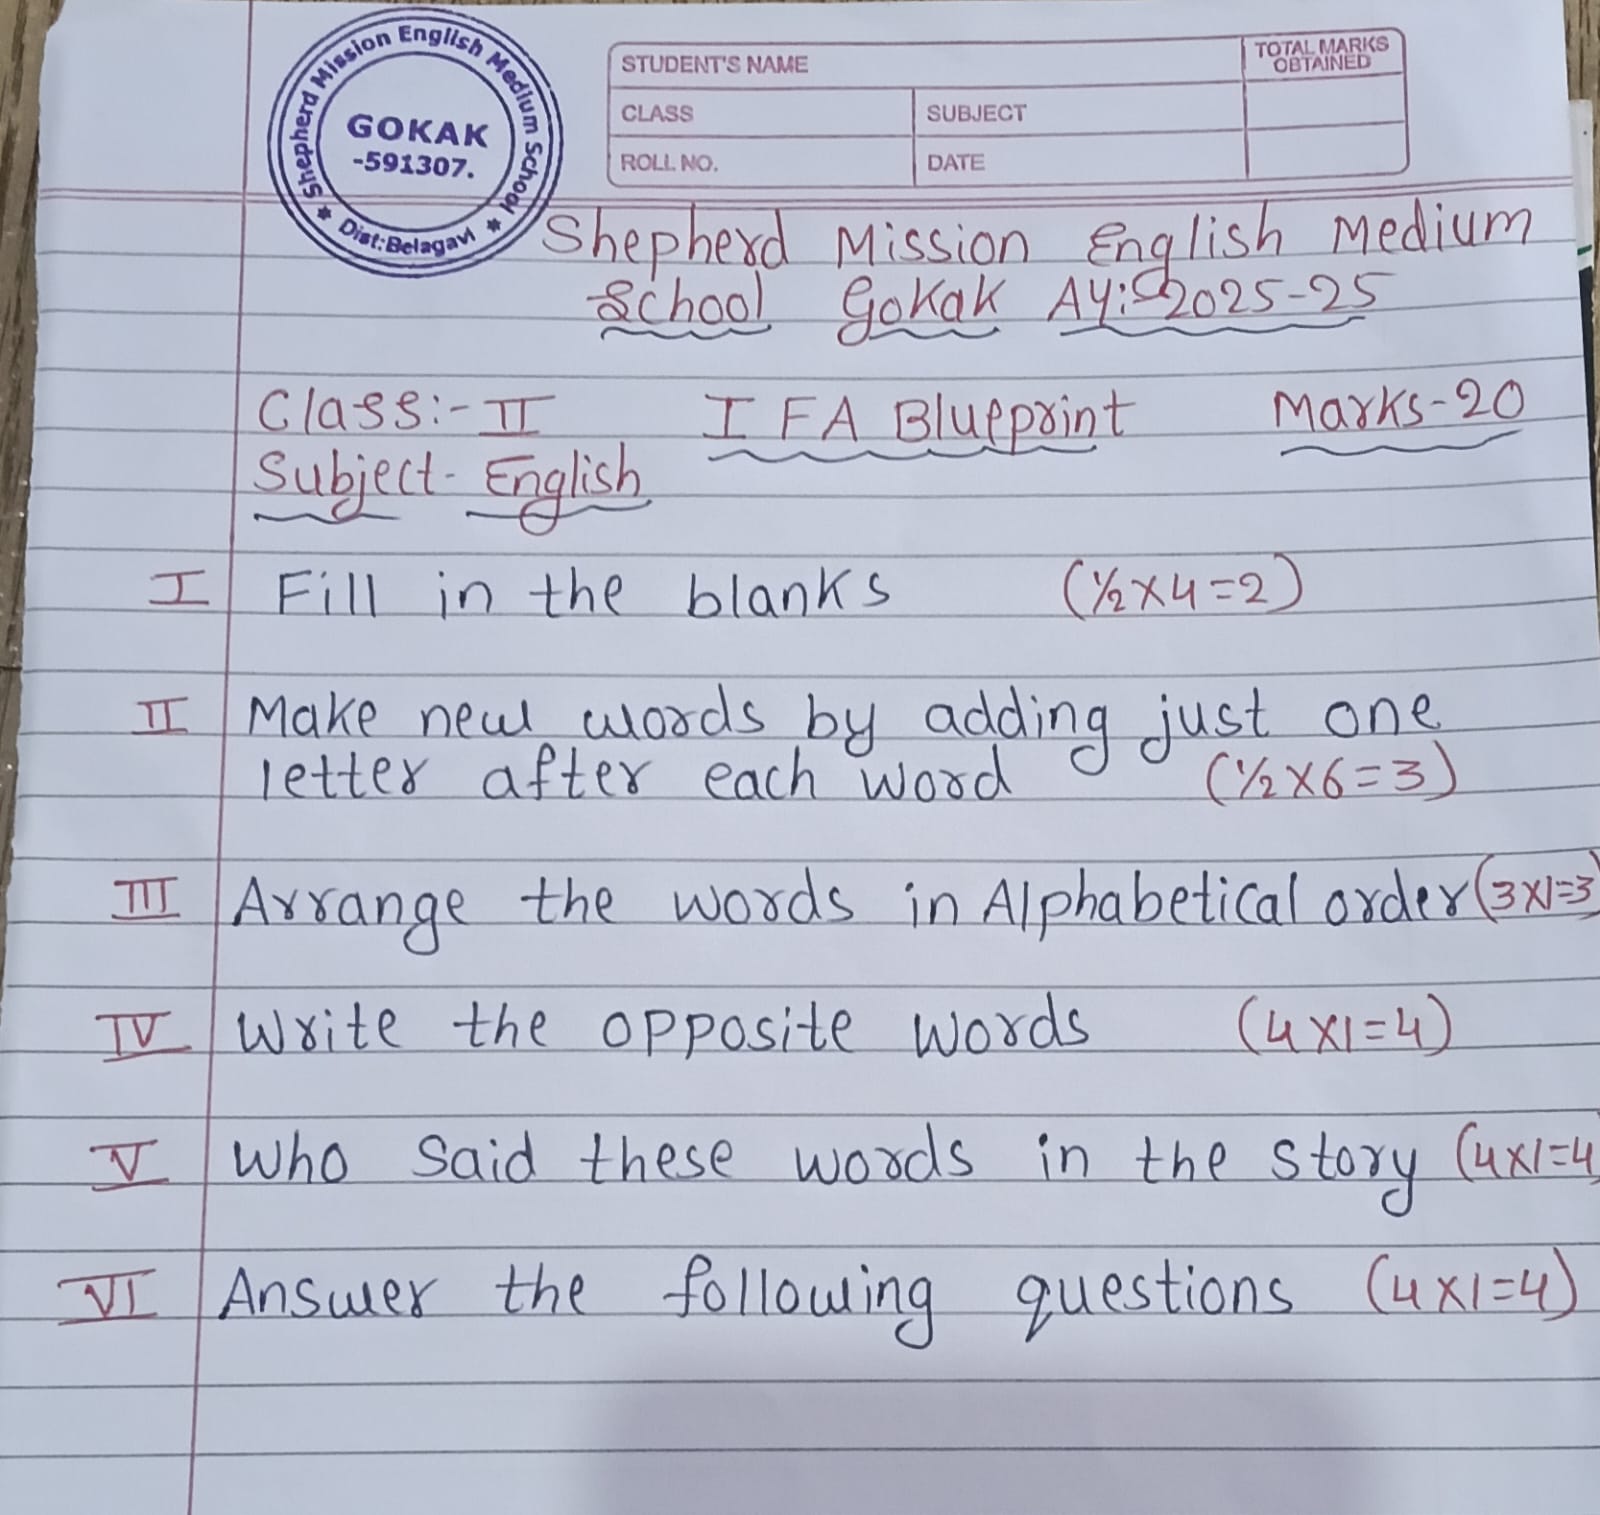 Shepherd Mission English Medium School
GOKAK
-591307.
Dist: Belagavi
STUDENT'S NAME
TOTAL MARKS OBTAINED
CLASS
SUBJECT
ROLL NO.
DATE
Shepherd Mission English Medium
School Gokak AY:-2025-25
Class:- II I FA Blueprint Marks-20
Subject- English
I Fill in the blanks (½X4=2)
II Make new words by adding just one
letter after each word (½X6=3)
III Arrange the words in Alphabetical order (3X1=3)
IV Write the opposite words (4X1=4)
V Who Said these words in the story (4X1=4
VI Answer the following questions (4X1=4)